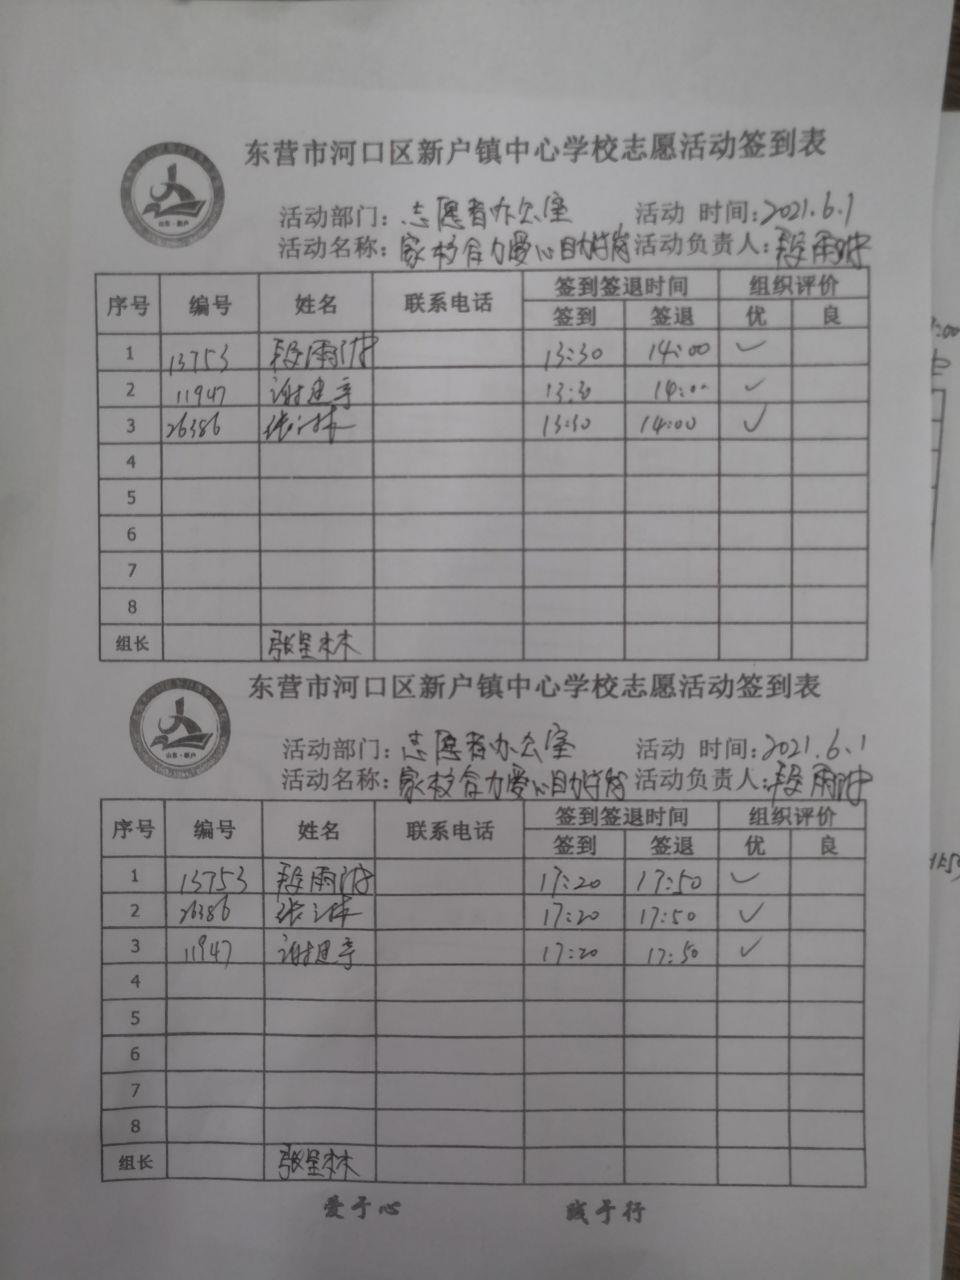 东营市河口区新户镇中心学校志愿活动签到表
山东·新户
活动部门：志愿者办公室 活动 时间：2021.6.1
活动名称：家校合力爱心 活动负责人：段雨
序号 编号 姓名 联系电话 签到签退时间 组织评价
签到 签退 优 良
1 13753 段雨 13:30 14:00 ✓
2 11947 谢建亭 13:30 14:00 ✓
3 26386 张 13:30 14:00 ✓
4
5
6
7
8
组长 张呈林
东营市河口区新户镇中心学校志愿活动签到表
山东·新户
活动部门：志愿者办公室 活动 时间：2021.6.1
活动名称：家校合力爱心 活动负责人：段雨
序号 编号 姓名 联系电话 签到签退时间 组织评价
签到 签退 优 良
1 13753 段雨 17:20 17:50 ✓
2 26386 张 17:20 17:50 ✓
3 11947 谢建亭 17:20 17:50 ✓
4
5
6
7
8
组长 张呈林
爱于心 践于行